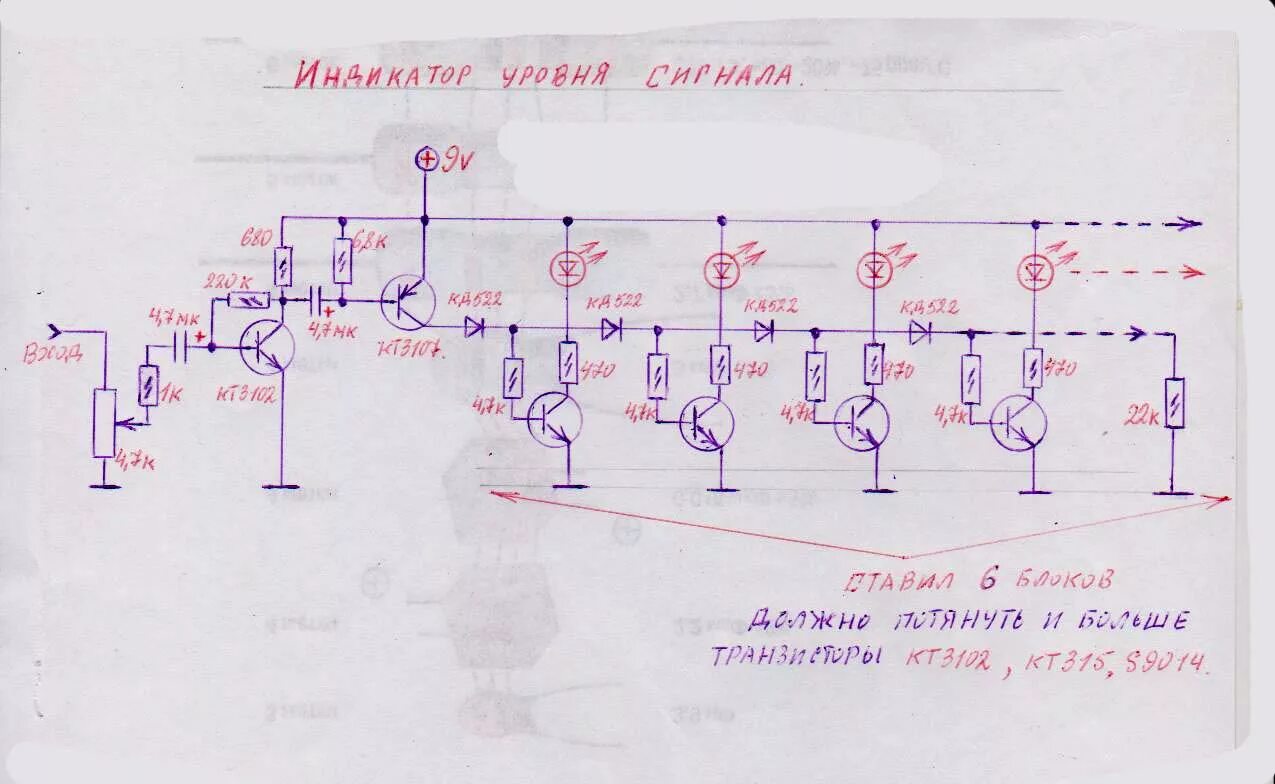 ИНДИКАТОР УРОВНЯ СИГНАЛА.
+ 9v
680
6,8к
220к
4,7мк +
4,7мк +
ВХОД
1к
КТ3102
КТ3107.
4,7к
КД522
КД522
КД522
КД522
470
470
470
470
4,7к
4,7к
4,7к
4,7к
22к
СТАВИЛ 6 БЛОКОВ
ДОЛЖНО ПОТЯНУТЬ И БОЛЬШЕ
ТРАНЗИСТОРЫ КТ3102, КТ315, S9014.